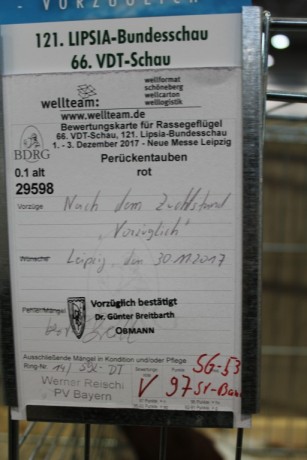 VORZÜGLICH
121. LIPSIA-Bundesschau
66. VDT-Schau
wellformat
schöneberg
wellcarton
welllogistik
wellteam:
www.wellteam.de
Bewertungskarte für Rassegeflügel
66. VDT-Schau, 121. Lipsia-Bundesschau
1. - 3. Dezember 2017 - Neue Messe Leipzig
BDRG
Perückentauben
0.1 alt
rot
29598
Vorzüge
Nach dem Zuchtstand
"Vorzüglich"
Wünsche
Leipzig, den 30.11.2017
Fehler/Mängel
Vorzüglich bestätigt
Dr. Günter Breitbarth
OBMANN
Ausschließende Mängel in Kondition und/oder Pflege
Ring-Nr.
Werner Reischl
PV Bayern
Bewertungsnote
Punkte
V 97
SG-E3